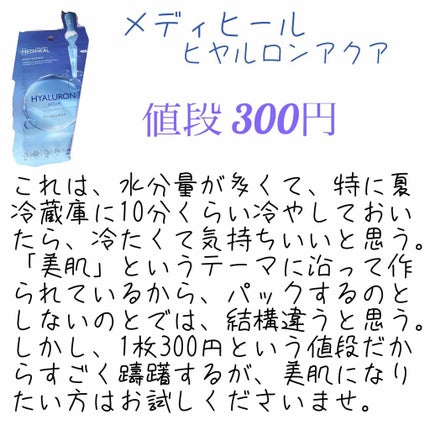 メディヒール
ヒヤルロンアクア
MEDIHEAL
HYALURON
AQUA
値段 300円
これは、水分量が多くて、特に夏
冷蔵庫に10分くらい冷やしておい
たら、冷たくて気持ちいいと思う。
「美肌」というテーマに沿って作
られているから、パックするのと
しないのとでは、結構違うと思う。
しかし、1枚300円という値段だか
らすごく躊躇するが、美肌になり
たい方はお試しくださいませ。